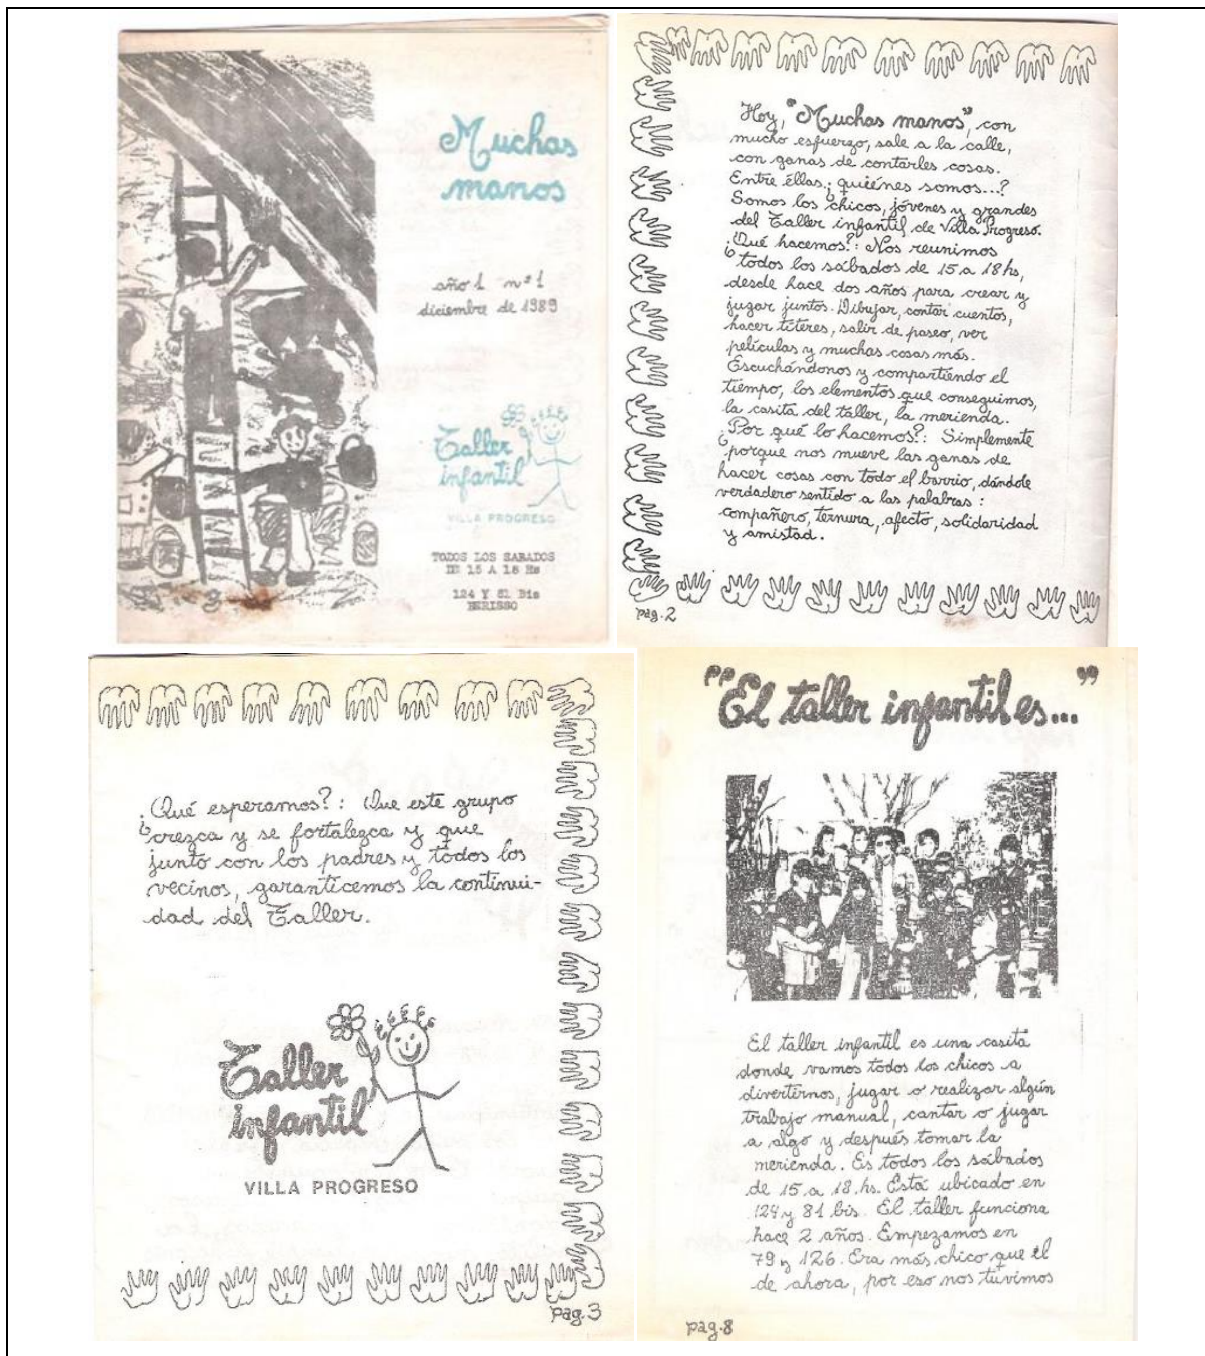 Muchas
manos
año 1 nº 1
diciembre de 1989
Taller
infantil
VILLA PROGRESO
TODOS LOS SABADOS
DE 15 A 18 Hs
124 Y 81 Bis
BERISSO
Hoy, "Muchas manos", con
mucho esfuerzo, sale a la calle,
con ganas de contarles cosas.
Entre éllas ¿quiénes somos...?
Somos los chicos, jóvenes y grandes
del Taller infantil de Villa Progreso.
¿Qué hacemos?: Nos reunimos
todos los sábados de 15 a 18 hs,
desde hace dos años para crear y
jugar juntos. Dibujar, contar cuentos,
hacer títeres, salir de paseo, ver
películas y muchas cosas más.
Escuchándonos y compartiendo el
tiempo, los elementos que conseguimos,
la casita del taller, la merienda.
¿Por qué lo hacemos?: Simplemente
porque nos mueve las ganas de
hacer cosas con todo el barrio, dándole
verdadero sentido a las palabras:
compañero, ternura, afecto, solidaridad
y amistad.
pag. 2
¿Qué esperamos?: Que este grupo
crezca y se fortalezca y que
junto con los padres y todos los
vecinos, garanticemos la continui-
dad del Taller.
Taller
infantil
VILLA PROGRESO
pag. 3
"El taller infantil es..."
El taller infantil es una casita
donde vamos todos los chicos a
divertirnos, jugar o realizar algún
trabajo manual, cantar o jugar
a algo y después tomar la
merienda. Es todos los sábados
de 15 a 18. hs. Está ubicado en
124 y 81 bis. El taller funciona
hace 2 años. Empezamos en
79 y 126. Era más chico que el
de ahora, por eso nos tuvimos
pag. 8